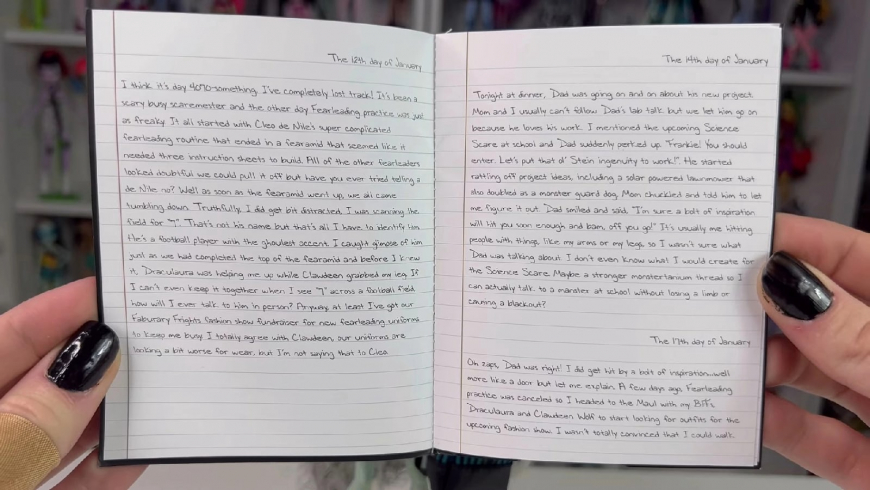 The 12th day of January
I think it's day 4010-something. I've completely lost track! It's been a
scary busy scaremester and the other day Fearleading practice was just
as freaky. It all started with Cleo de Nile's super complicated
fearleading routine that ended in a fearamid that seemed like it
needed three instruction sheets to build. All of the other fearleaders
looked doubtful we could pull it off but have you ever tried telling a
de Nile no? Well as soon as the fearamid went up, we all came
tumbling down. Truthfully, I did get bit distracted. I was scanning the
field for "J". That's not his name but that's all I have to identify him.
He's a football player with the ghoulest accent. I caught glimpse of him
just as we had completed the top of the fearamid and before I knew
it, Draculaura was helping me up while Clawdeen grabbed my leg. If
I can't even keep it together when I see "J" across a football field
how will I ever talk to him in person? Anyway, at least I've got our
Faburary Frights fashion show fundraiser for new fearleading uniforms
to keep me busy. I totally agree with Clawdeen, our uniforms are
looking a bit worse for wear, but I'm not saying that to Cleo.
The 14th day of January
Tonight at dinner, Dad was going on and on about his new project.
Mom and I usually can't follow Dad's lab talk but we let him go on
because he loves his work. I mentioned the upcoming Science
Scare at school and Dad suddenly perked up. "Frankie! You should
enter. Let's put that ol' Stein ingenuity to work!!". He started
rattling off project ideas, including a solar powered lawnmower that
also doubled as a monster guard dog. Mom chuckled and told him to let
me figure it out. Dad smiled and said, "I'm sure a bolt of inspiration
will hit you soon enough and bam, off you go!" It's usually me hitting
people with things, like my arms or my legs so I wasn't sure what
Dad was talking about. I don't even know what I would create for
the Science Scare. Maybe a stronger monstertanium thread so I
can actually talk to a manster at school without losing a limb or
causing a blackout?
The 17th day of January
Oh zaps, Dad was right! I did get hit by a bolt of inspiration...well
more like a door but let me explain. A few days ago, Fearleading
practice was canceled so I headed to the Maul with my BFFs
Draculaura and Clawdeen Wolf to start looking for outfits for the
upcoming fashion show. I wasn't totally convinced that I could walk